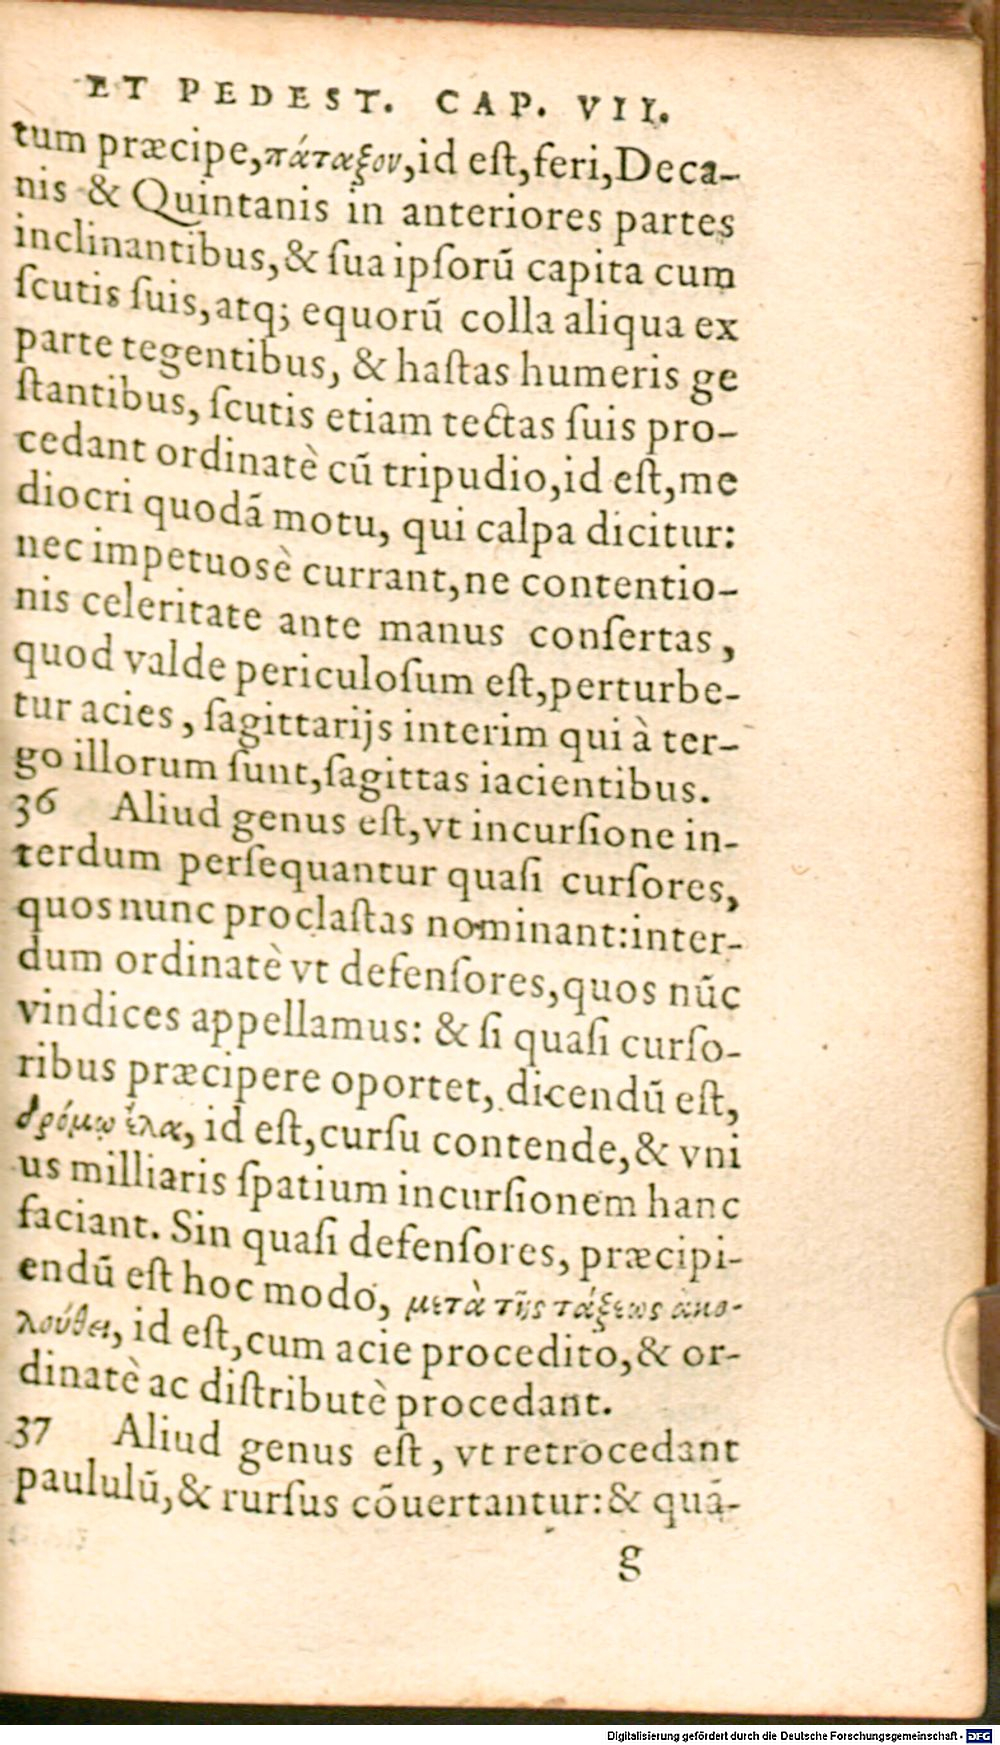 ET PEDEST. CAP. VII.
tum præcipe,πάταξον,id eſt,feri,Deca-
nis & Quintanis in anteriores partes
inclinantibus,& ſua ipſorũ capita cum
ſcutis ſuis,atq; equorũ colla aliqua ex
parte tegentibus, & haſtas humeris ge
ſtantibus, ſcutis etiam tectas ſuis pro-
cedant ordinatè cũ tripudio,id eſt,me
diocri quodã motu, qui calpa dicitur:
nec impetuosè currant,ne contentio-
nis celeritate ante manus conſertas,
quod valde periculoſum eſt,perturbe-
tur acies, ſagittarijs interim qui à ter-
go illorum ſunt,ſagittas iacientibus.
36 Aliud genus eſt,vt incurſione in-
terdum perſequantur quaſi curſores,
quos nunc proclaſtas nominant:inter-
dum ordinatè vt defenſores,quos nũc
vindices appellamus: & ſi quaſi curſo-
ribus præcipere oportet, dicendũ eſt,
δρόμῳ ἔλα, id eſt,curſu contende,& vni
us milliaris ſpatium incurſionem hanc
faciant. Sin quaſi defenſores, præcipi-
endũ eſt hoc modo, μετὰ τῆς τάξεως ἀκο-
λούθει, id eſt,cum acie procedito,& or-
dinatè ac diſtributè procedant.
37 Aliud genus eſt, vt retrocedant
paululũ,& rurſus cõuertantur:& quã-
g
Digitalisierung gefördert durch die Deutsche Forschungsgemeinschaft - DFG